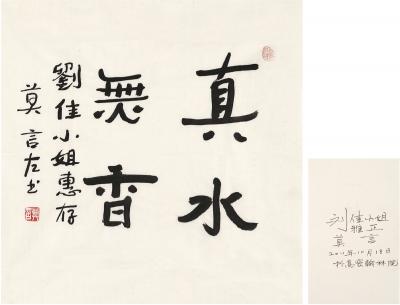 真水
無香
劉佳小姐惠存
莫言左书
刘佳小姐
雅正
莫言
2011年10月18日
于高密翰林院